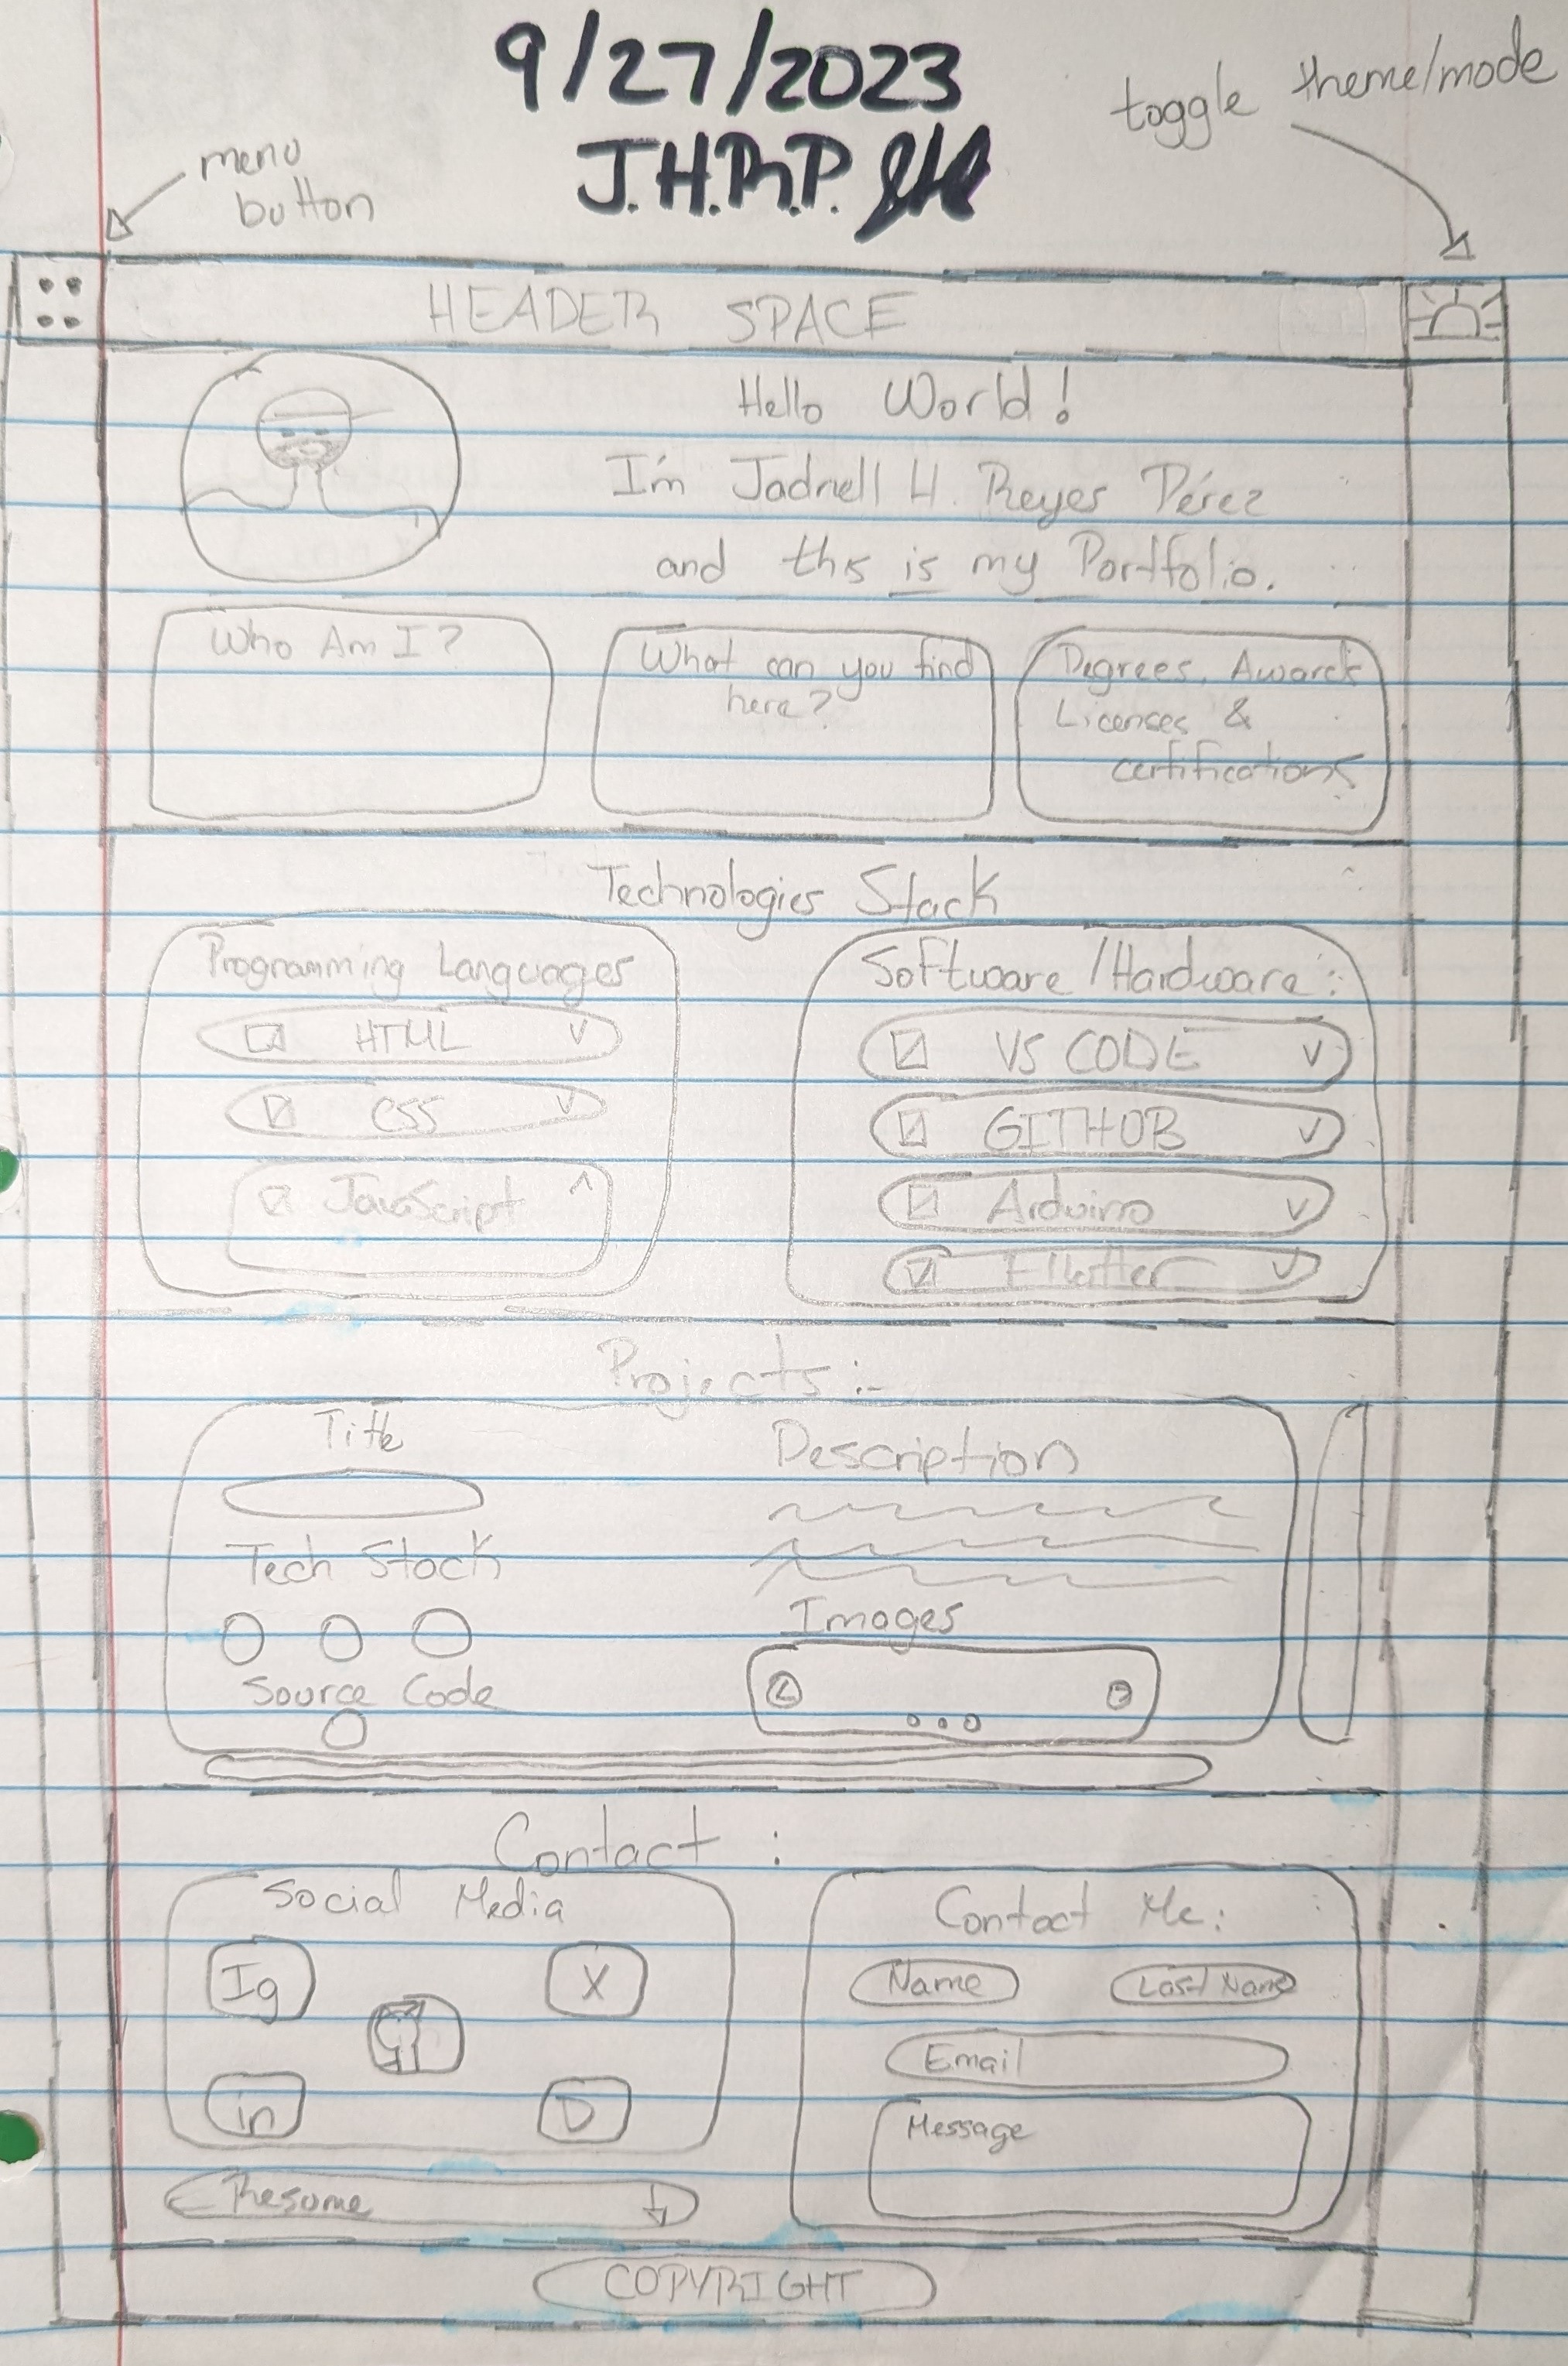 9/27/2023
toggle theme/mode
J.H.R.P.
menu
button
HEADER SPACE
Hello World!
I'm Jadnell H. Reyes Pérez
and this is my Portfolio.
Who Am I?
What can you find
here?
Degrees, Awards
Licenses &
certifications
Technologies Stack
Programming Languages
HTML
CSS
JavaScript
Software/Hardware:
VS CODE
GITHUB
Arduino
Projects:
Title
Tech Stack
Source Code
Description
Images
Contact:
Social Media
Ig
X
in
D
Resume
Contact Me:
Name
Last Name
Email
Message
COPYRIGHT